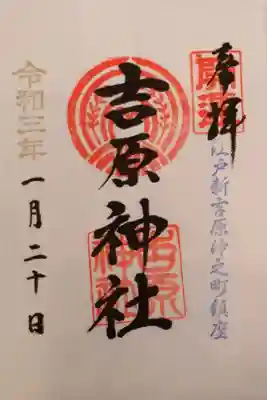 奉拝
江戸新吉原御之町鎮座
吉原神社
令和三年
一月二十日